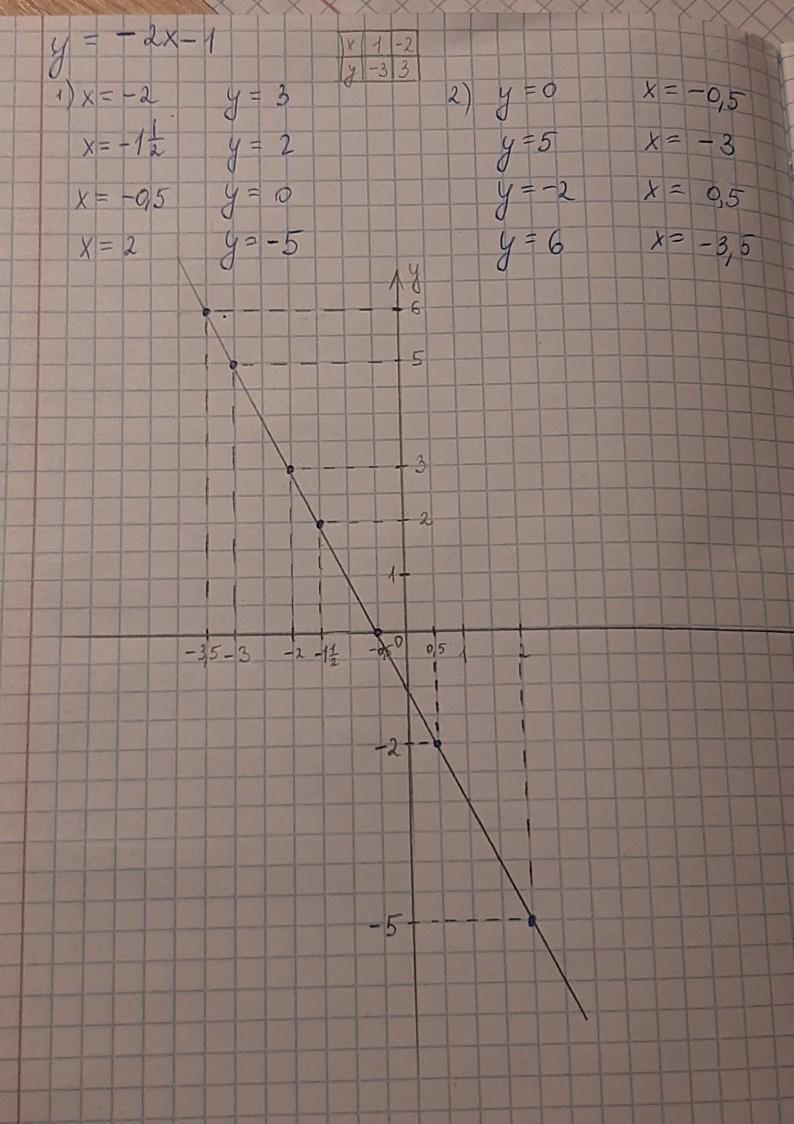 y = -2x-1
x 1 -2
y -3 3
1) x = -2 y = 3
x = -1 1/2 y = 2
x = -0,5 y = 0
x = 2 y = -5
2) y = 0 x = -0,5
y = 5 x = -3
y = -2 x = 0,5
y = 6 x = -3,5
y
6
5
3
2
1
-3,5 -3 -2 -1 1/2 -0,5 0 0,5 1 2
-2
-5